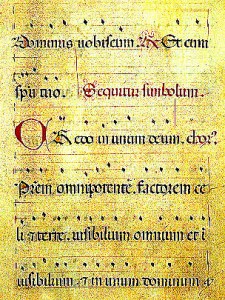 Dominus uobiscum. R Et cum
spū tuo. Sequitur simbolum.
CRedo in unum deum, chor?
Prem omnipotentē, factorem ce
li & terre, uisibilium omnium et i
uisibilium. & in unum dominum